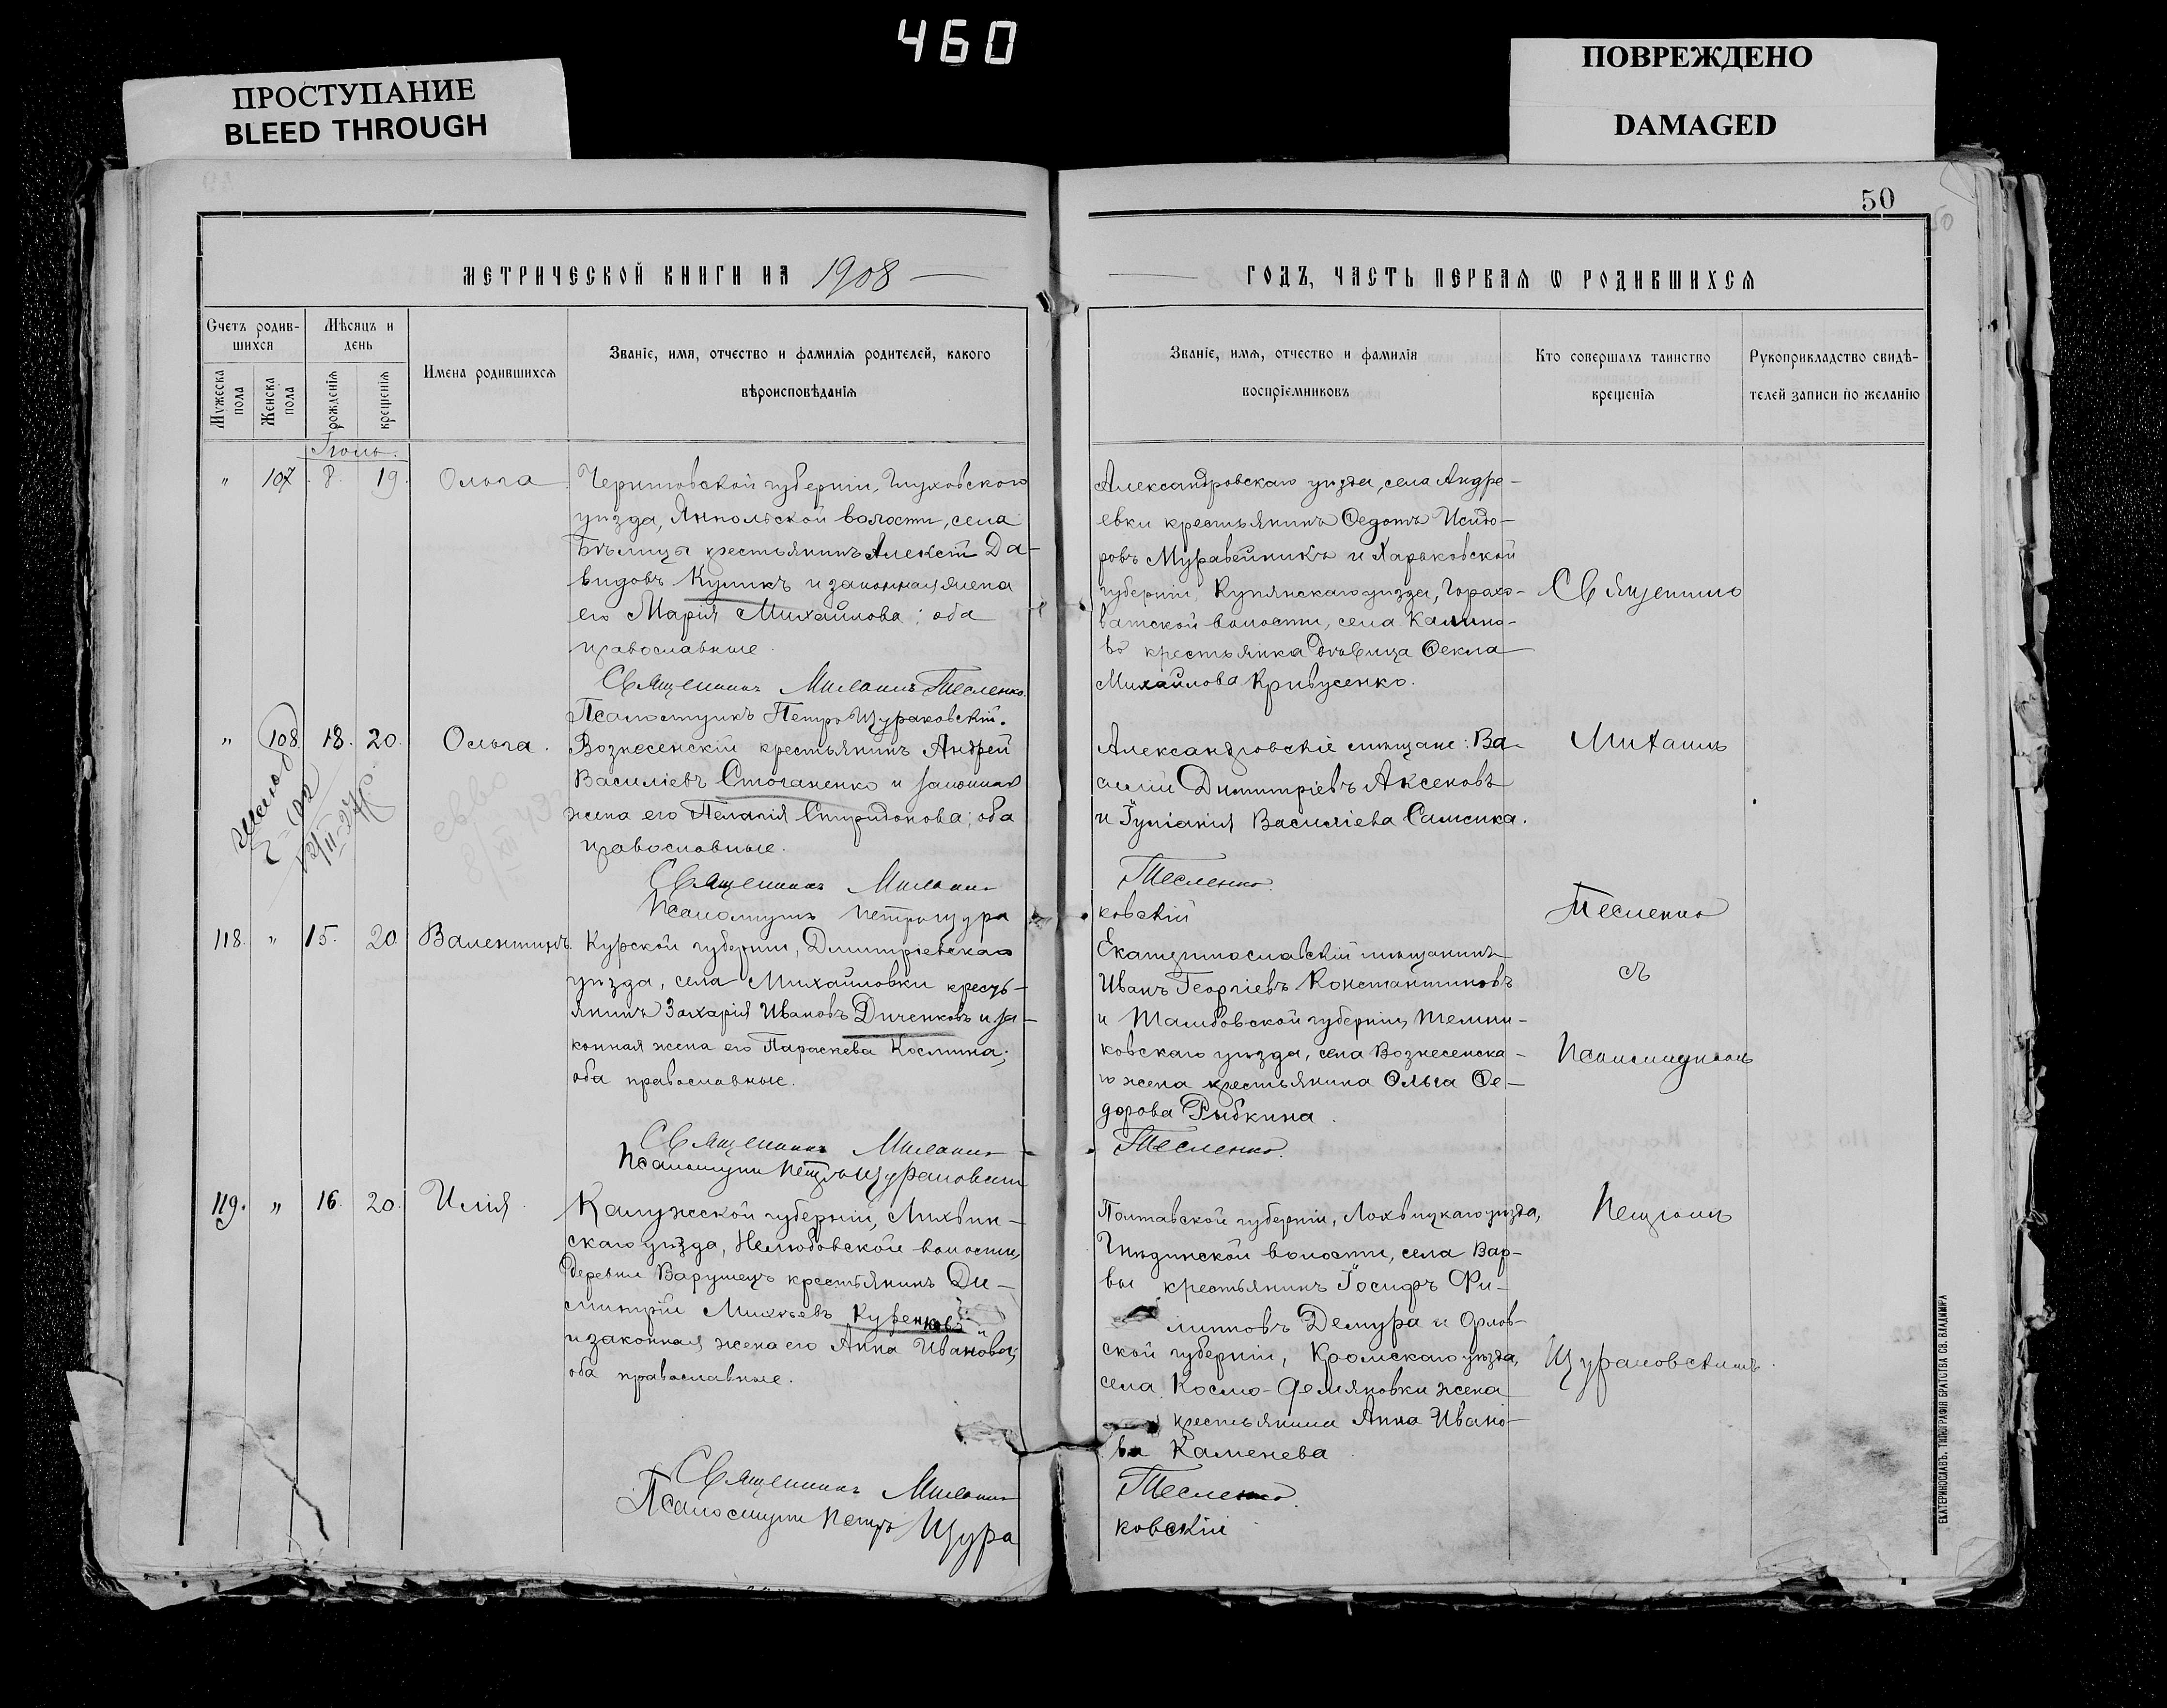 460
ПРОСТУПАНИЕ
BLEED THROUGH
ПОВРЕЖДЕНО
DAMAGED
50
МЕТРИЧЕСКОЙ КНИГИ НА 1908
ГОДЪ, ЧАСТЬ ПЕРВАЯ Ѡ РОДИВШИХСЯ
Счетъ родив-
шихся
Мужеска
пола
Женска
пола
Мѣсяцъ и
день
рожденія
крещенія
Имена родившихся
Званіе, имя, отчество и фамилія родителей, какого
вѣроисповѣданія
Званіе, имя, отчество и фамилія
воспріемниковъ
Кто совершалъ таинство
крещенія
Рукоприкладство свидѣ-
телей записи по желанію
Іюль.
" 107 8. 19. Ольга.
Черниговской губерніи, Глуховского
уѣзда, Янпольской волости, села
Бѣлицы крестьянинъ Алексій Да-
видовъ Куликъ и законная жена
его Марія Михайлова; оба
православные.
Священникъ Михаилъ Тесленко.
Псаломщикъ Петръ Щураковскій.
Александровскаго уѣзда, села Андре-
евки крестьянинъ Ѳедотъ Исидо-
ровъ Муравейникъ и Харьковской
губерніи, Купянскаго уѣзда, Горохо-
ватской волости, села Калино-
во крестьянка дѣвица Ѳекла
Михайлова Кривусенко.
Священник
" 108. 18. 20. Ольга.
Вознесенскій крестьянинъ Андрей
Василіевъ Стоганенко и законная
жена его Пелагія Спиридонова; оба
православные.
Священникъ Михаилъ
Псаломщикъ Петръ Щура
Александровскіе мѣщане: Ва-
силій Димитріевъ Аксеновъ
и Іуліанія Василіева Самсика.
Тесленко.
ковскій
Михаилъ
Тесленко
съ
118. " 15. 20. Валентинъ.
Курской губерніи, Дмитріевскаго
уѣзда, села Михайловки кресть-
янинъ Захарія Ивановъ Диченковъ и за-
конная жена его Параскева Космина;
оба православные.
Священникъ Михаилъ
Псаломщикъ Петръ Щураковскій
Екатеринославскій мѣщанинъ
Иванъ Георгіевъ Константиновъ
и Тамбовской губерніи, Темни-
ковскаго уѣзда, села Вознесенска-
го жена крестьянина Ольга Ѳе-
дорова Рыбкина.
Тесленко.
Псаломщикомъ
119. " 16. 20. Илія.
Калужской губерніи, Лихвин-
скаго уѣзда, Нелюбовской волости,
деревни Варушецъ крестьянинъ Ди-
митрій Михеевъ Куренковъ
и законная жена его Анна Иванова;
оба православные.
Священникъ Михаилъ
Псаломщикъ Петръ Щура
Полтавской губерніи, Лохвицкаго уѣзда,
Гнѣдинской волости, села Вар-
вы крестьянинъ Іосифъ Фи-
липповъ Демура и Орлов-
ской губерніи, Кромскаго уѣзда,
села Космо-Демяновки жена
крестьянина Анна Ивано-
ва Каменева
Тесленко.
ковскій
Петромъ
Щураковскимъ.
ЕКАТЕРИНОСЛАВЪ. ТИПОГРАФІЯ БРАТСТВА СВ. ВЛАДИМІРА